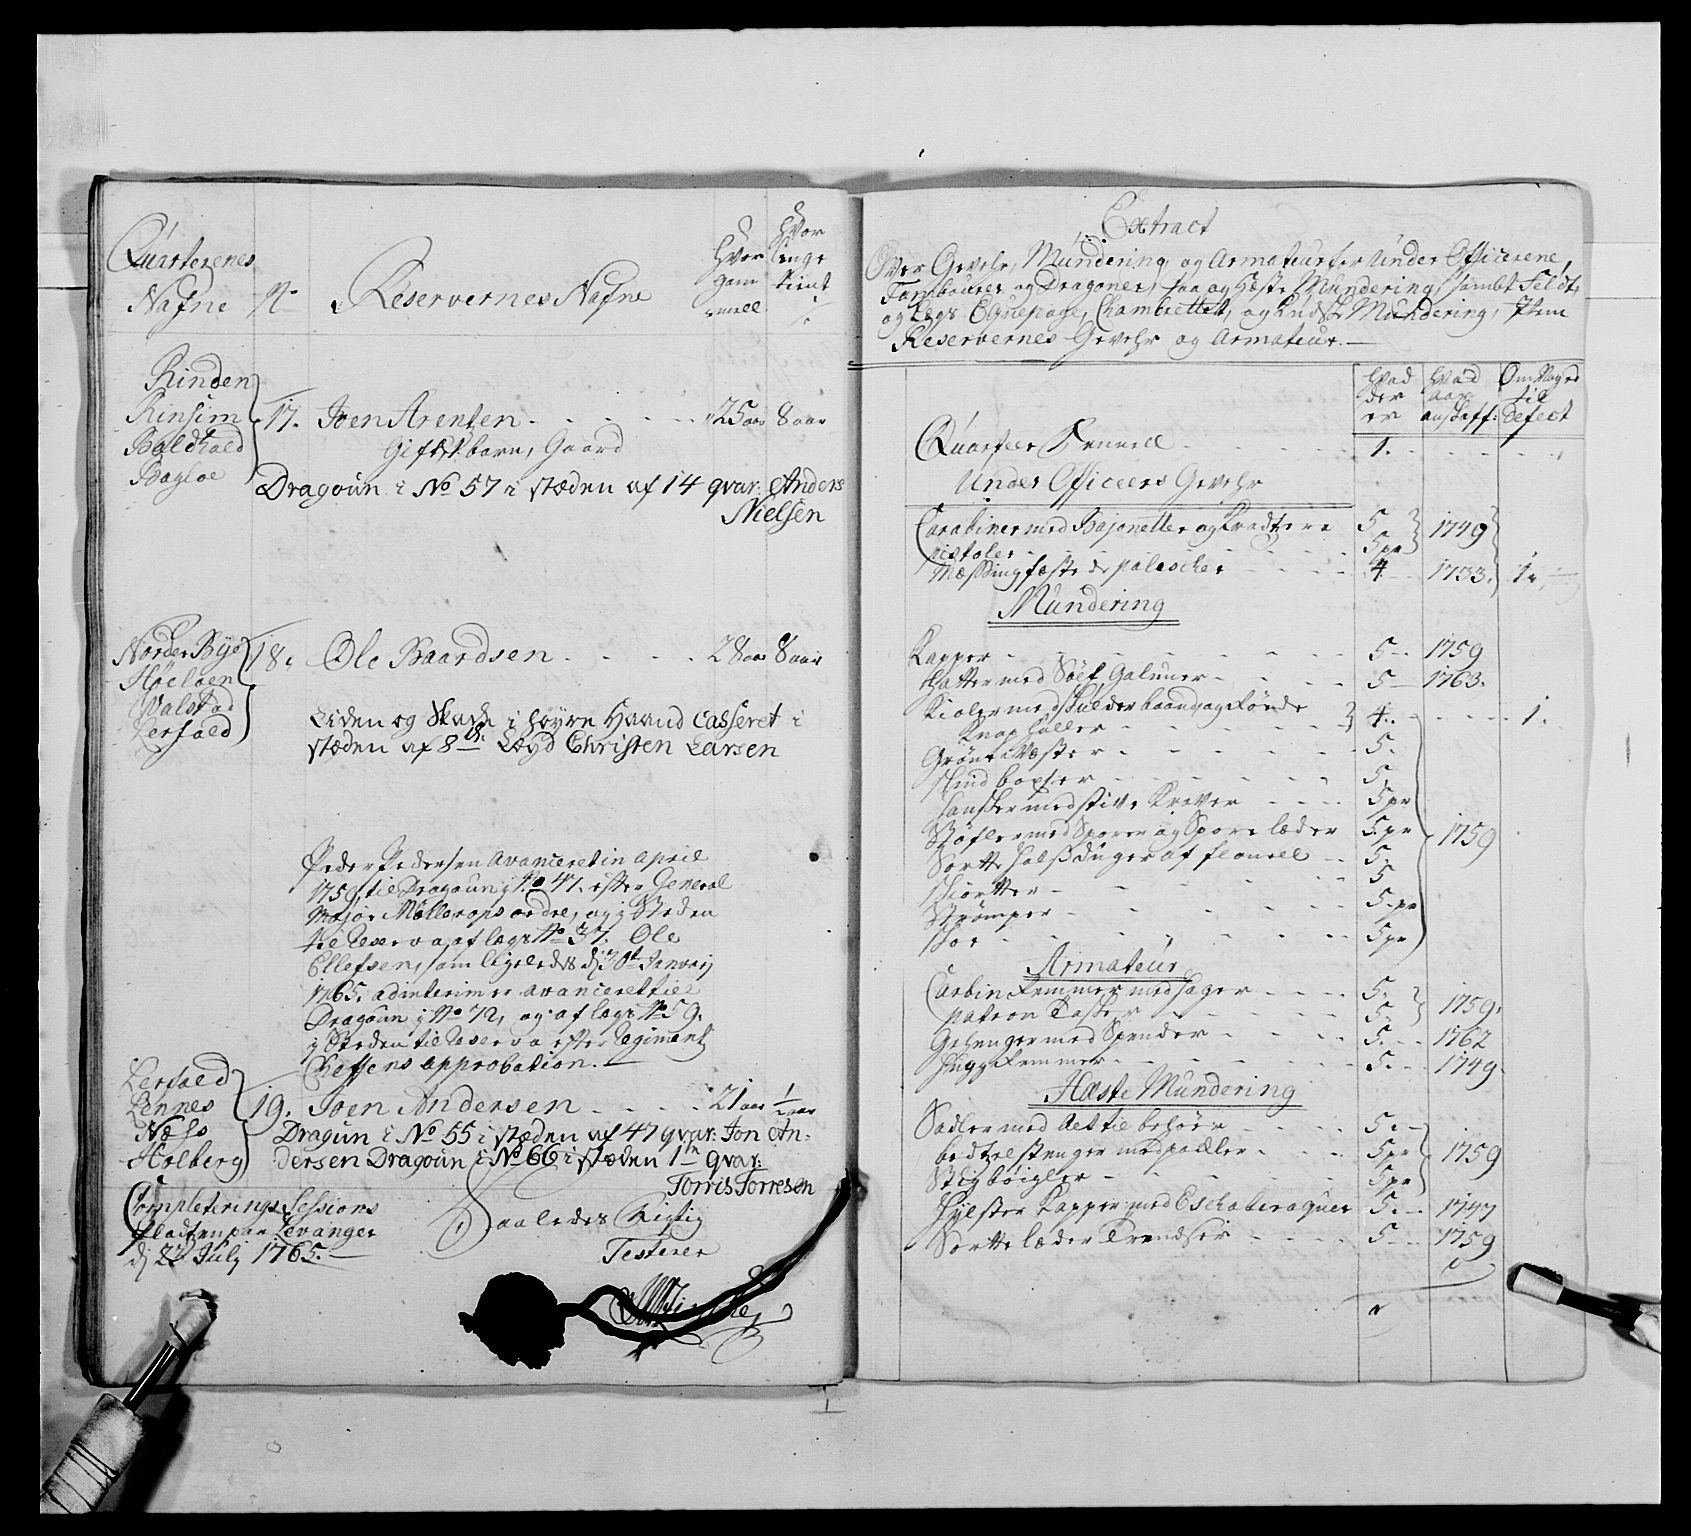 Quarterenes
Nafne
No
Reservernes Nafne
Hvor
gam
mell
Hvor
lenge
tient
Rinden
Rinsim
Baldhald
Bagloe
17. Joen Arentsen - - - - 25 aar 8 aar
Gift, 1 barn, Gaard
Dragoun i No 57 i stæden af 14 qvar: Anders
Nielsen
Norder Bye
Høeloen
Valstad
Lerfald
18. Ole Baardsen - - - - 28 aar 8 aar
Liden og Skade i høyre Haand Casseret i
stæden af 8de Lægd Christen Larsen
Peder Pedersen avanceret in April
1759, til Dragoun i No 47. efter General
Major Møllerops ordre, og i Steden
til Reserva, af lægd No 37. Ole
Ellefsen, som ligeledes dj 30t Januarj
1765. ad interim er avanceret till
Dragoun i No 72, og af lægd No 59.
i Steden til Reserva efter Regiment
Cheffens approbation.
Lerfald
Lennes
Næss
Holberg
19. Joen Andersen - - - - 21 aar 1/2 aar
Dragun i No 55 i stæden af 47 qvar: Jon An-
dersen Dragoun i No 66 i stæden 1te qvar:
Torris Torresen
Completerings Sessions
Pladtzen paa Levanger
dj 23 Julij 1765.
Saaledes Rigtig
Testerer
Extract
Over Gevehr, Mundering, og Armatur for Under Officerene,
Tambourer og Dragoner, saa og Heste Mundering, samt Feldt,
og Lægs Equipage, Chambrettet, og Kudsk Mundering, Item
Reservernes Gevehr og Armateur.
Hvad
der
er
Hvad
aar
anskaff:
Omslaged
til
Defect
Quarteer Tummell - - - 1.
Under Officeers Gevehr
Carabiner med Bajonetter og Kradsere 5 1749
Pistoler - - - 5 pr
Messingfæstede palascher - - - 4 1733. 1.
Mundering
Kapper - - - 5 1759
Hatter med Sølf Galuner - - - 5 1763.
Kioler med Skulder baand og Røde
Knap huller - - - 4. 1.
Grønne Væster - - - 5.
Skind boxser - - - 5.
Hansker med stive Kraver - - - 5 pr
Støfler med Sporer og Spore læder 5 pr 1759
Sorte halsduger af flonell - - 5.
Skiorter - - - 5
Strømper - - - 5 pr
Skoe - - - 5 pr
Armateur
Carbin Remmer med hager - - - 5. 1759.
Patron Tasker - - - 5
Gehenger med Spender - - - 5. 1762
Hugge Remmer - - - 5. 1749.
Hæste Mundering
Sadler med alt tilbehør - - - 5.
bedtzelstenger med puckler - - - 5 pr 1759
Stigbøigler - - - 5 pr
Hylster Kapper med Eschaberaquer 5. 1747
Sorte læder Trendser - - - 5 1759